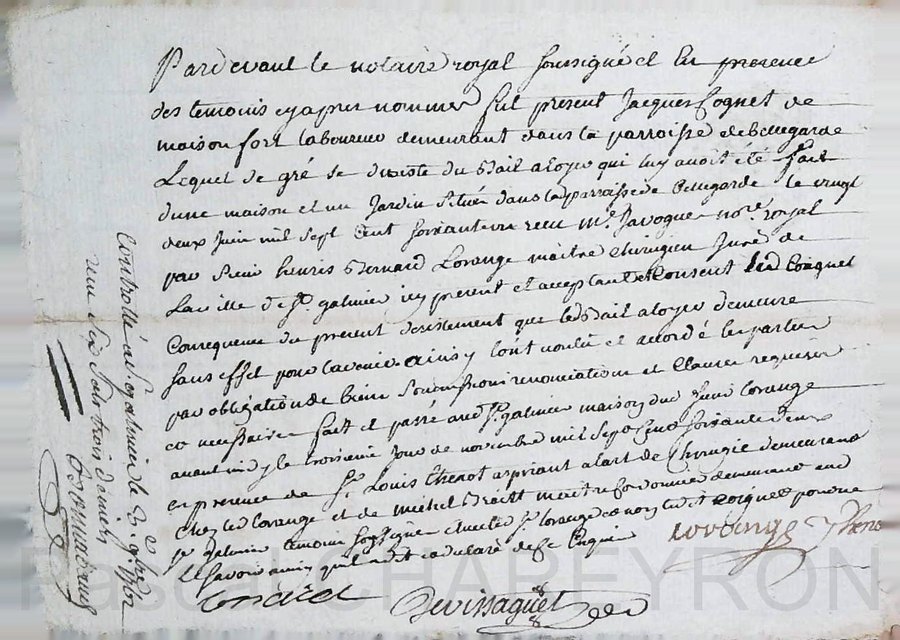 Pardevant le notaire royal soussigné et En presence
des temoins cyapres nommes fut present Jacques Cognet de
maison fort laboureur demeurant dans la parroisse de bellegarde
Lequel de gré se desiste du Bail aloyer qui luy avoit été fait
dune maison et un Jardin Situés dans la parroisse de Bellegarde le vingt
deux Juin mil sept Cent soixante un receu Me. Javogue nore. royal
par Sieur henris Bernard Lorange maitre Chirugien Juré de
La ville de St. galmier icy present et acceptant et Consent led Coignet
Consequence du present desistement que led Bail aloyer demeure
sans effet pour lavenir ainsy lont voulu et accordé les parties
par obligation de biens Soumissions renonciations et Clauses requises
et necessaires fait et passé aud St. galmier maison dud sieur Lorange
avant midy le troisieme Jour de novembre mil sept Cent soixante deux
en presence de Sr. Louis thenot aspirant a lart de Chirugie demeurant
Chez led Lorange et de michel maitre Cordonnier demeurant aud
St. galmier temoins soussignés avec led Sr. lorange et non led Coignet pour ne
le savoir ainsi quil a dit et declaré de Ce Enquis
Lorange thenot
Devissaguet
Controllé a St galmier le 9bre 1762
receu six sols trois deniers
Pascal CHAPEYRON